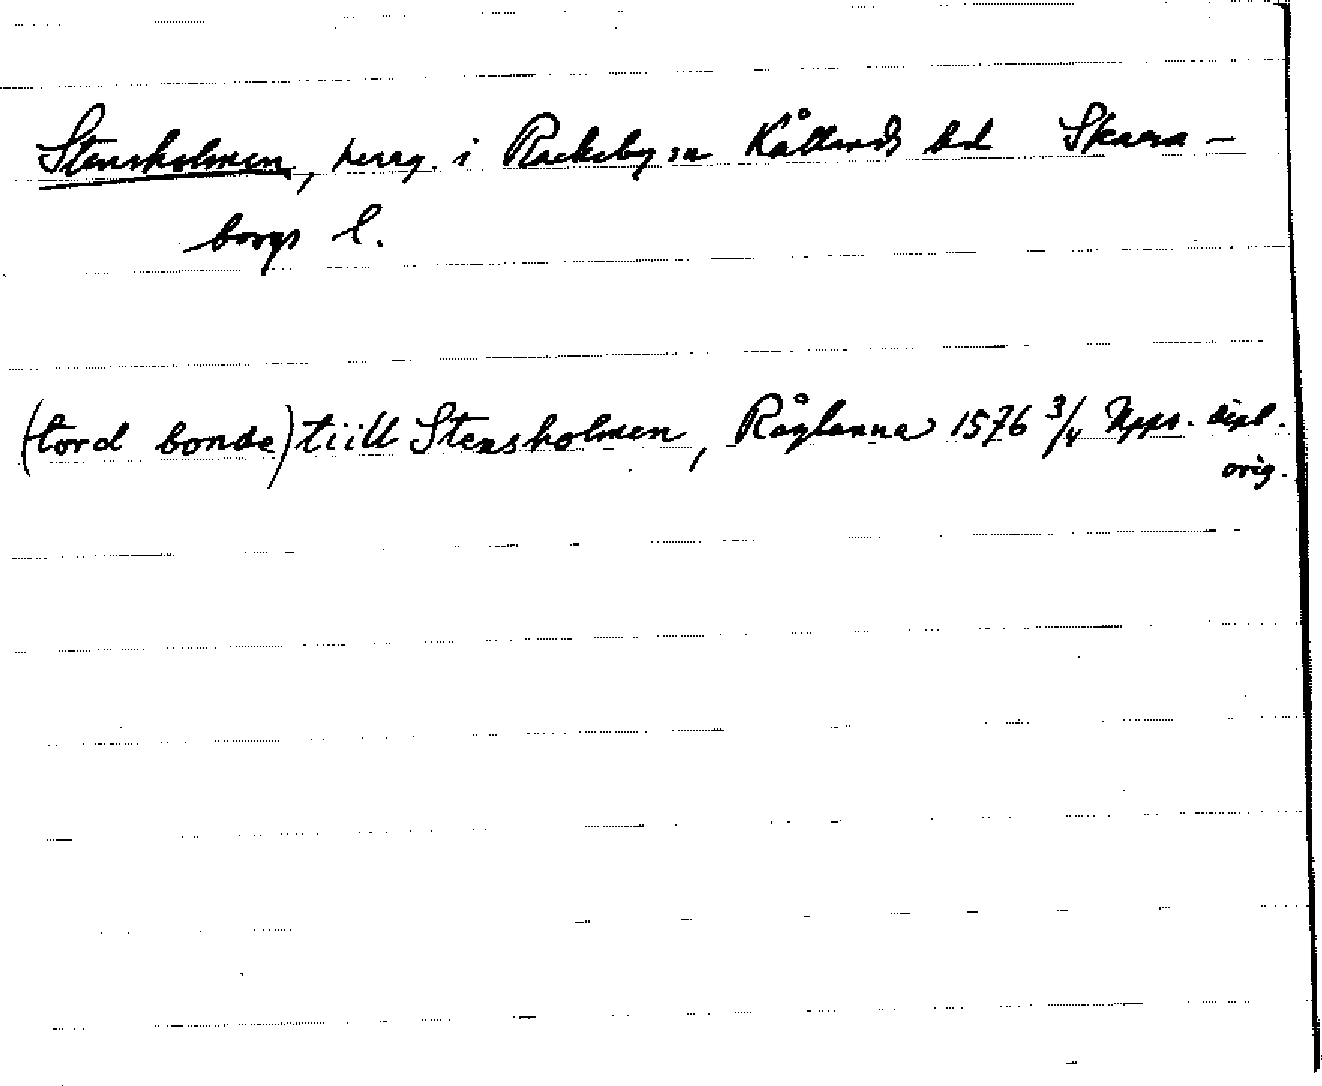 Stensholmen, herrg. i Rackeby sn Kållands hd Skara-
borgs l.
(tord bonde) tiill Stensholmen, Råglanna 1576 3/4 Upps. dipl.
orig.